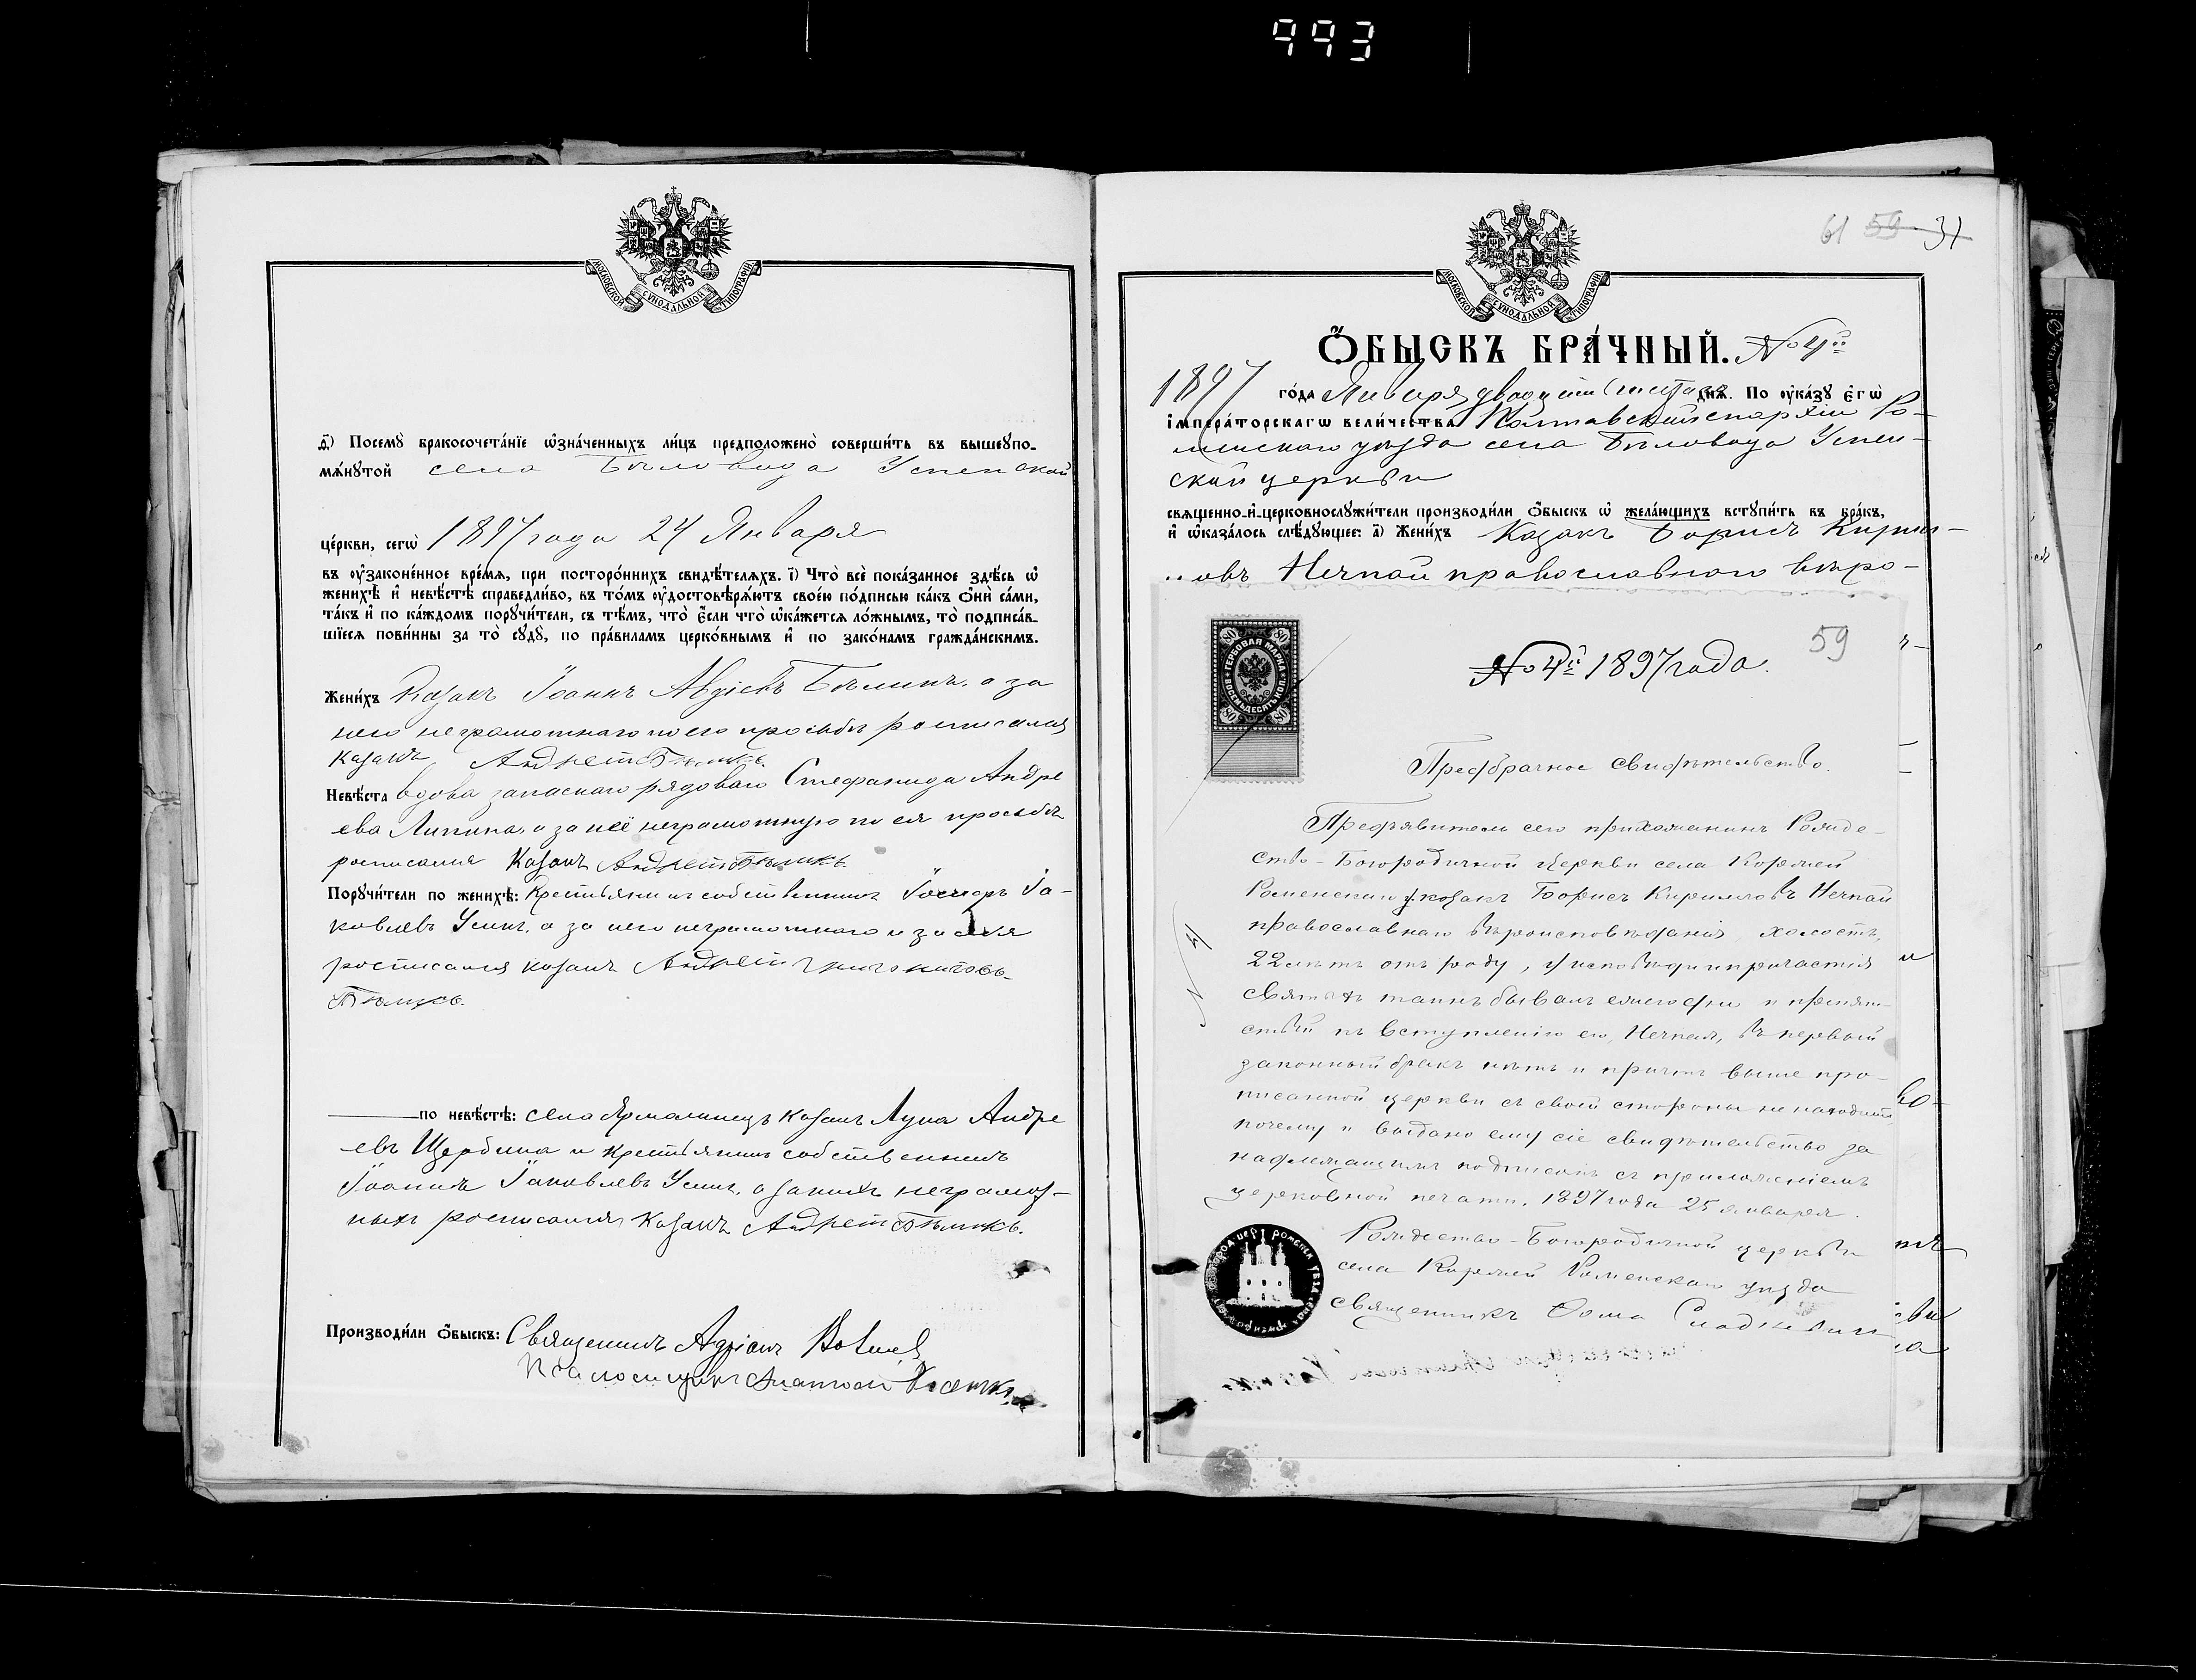 993
МОСКОВСКОЙ СѴНОДАЛЬНОЙ ТИПОГРАФІИ
ѳ҃) Посемꙋ̀ бракосочета́нїе ѡ҆зна́ченныхъ ли́цъ предположено̀ соверши́ть въ вышеупо-
мѧ́нꙋтой села Бѣловода Успенской
це́ркви, сегѡ̀ 1897 года 24 Января
въ ᲂу҆зако́ненное вре́мѧ, при посторо́ннихъ свидѣ́телѧхъ. і҃) Что̀ всѐ пока́занное здѣ́сь ѡ҆
женихѣ̀ и҆ невѣ́стѣ справедли́во, въ то́мъ ᲂу҆достовѣрѧ́ютъ свое́ю по́дписью ка́къ ѻ҆нѝ са́ми,
та́къ и҆ по ка́ждомъ порꙋчи́тели, съ тѣ́мъ, что̀ є҆́сли что̀ ѡ҆ка́жетсѧ ло́жнымъ, то̀ подписа́в-
шїесѧ пови́нны за то̀ сꙋдꙋ̀, по пра́виламъ церко́внымъ и҆ по зако́намъ гражда́нскимъ.
Жени́хъ Казакъ Іоаннъ Авдіевъ Бѣликъ, а за
него неграмотнаго по его просьбѣ росписался
казакъ Андрей Бѣликъ.
Невѣ́ста вдова запаснаго рядового Стефанида Андре
ева Липина, а за неё неграмотную по ея просьбѣ
росписался Казакъ Андрей Бѣликъ
Порꙋчи́тели по женихѣ̀: Крестьянинъ собственникъ Іосифъ Іа-
ковлевъ Усикъ, а за него неграмотнаго и за себя
росписался казакъ Андрей
Бѣликъ.
по невѣ́стѣ: села Ярмолинецъ казакъ Лука Андре
евъ Щербина и крестьянинъ собственникъ
Іоаннъ Іаковлевъ Усикъ, а за нихъ неграмот-
ныхъ росписался Казакъ Андрей Бѣликъ.
Производи́ли ѻ҆́быскъ: Священникъ Адріанъ
Псаломщикъ
61 59 31
МОСКОВСКОЙ СѴНОДАЛЬНОЙ ТИПОГРАФІИ
Ѻ҆́БЫСКЪ БРА́ЧНЫЙ. № 4й
1897 го́да Января двадцать днѧ̀. По ᲂу҆ка́зꙋ є҆гѡ̀
і҆мпера́торскагѡ вели́чества Полтавской епархіи Ро-
менскаго уѣзда села Бѣловода Успен-
ской церкви
свѧще́нно-и҆-церковнослꙋжи́тели производи́ли ѻ҆́быскъ ѡ҆ жела́ющихъ встꙋпи́ть въ бра́къ,
и҆ ѡ҆каза́лось слѣ́дꙋющее: а҃) Жени́хъ Казакъ Борисъ Кирил-
овъ Нечпай православнаго вѣро-
80 ГЕРБОВАЯ МАРКА ВОСЕМЬДЕСЯТЪ КОП. 80
№ 4й 1897 года.
59
Предбрачное свидѣтельство.
Предъявитель сего прихожанинъ Рожде-
ство-Богородичной церкви села Коржей
Роменскаго у. козакъ Борисъ Кирилловъ Нечпай
православнаго вѣроисповѣданія, холостъ,
22 лѣтъ отъ роду, у исповѣди и причастія
святыхъ таинъ бывалъ ежегодно и препят-
ствій къ вступленію его, Нечпая, въ первый
законный бракъ нѣтъ и причтъ выше про-
писанной церкви съ своей стороны не находитъ,
почему и выдано ему сіе свидѣтельство за
надлежащимъ подписомъ съ приложеніемъ
церковной печати. 1897 года 25 января.
Рождество-Богородичной церкви
села Коржей Роменскаго уѣзда
священникъ Ѳома Сладкевичъ